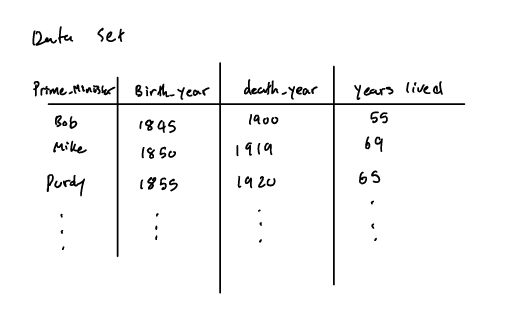 Data set
Prime_Minister Birth_year death_year years lived
Bob 1845 1900 55
Mike 1850 1919 69
Purdy 1855 1920 65